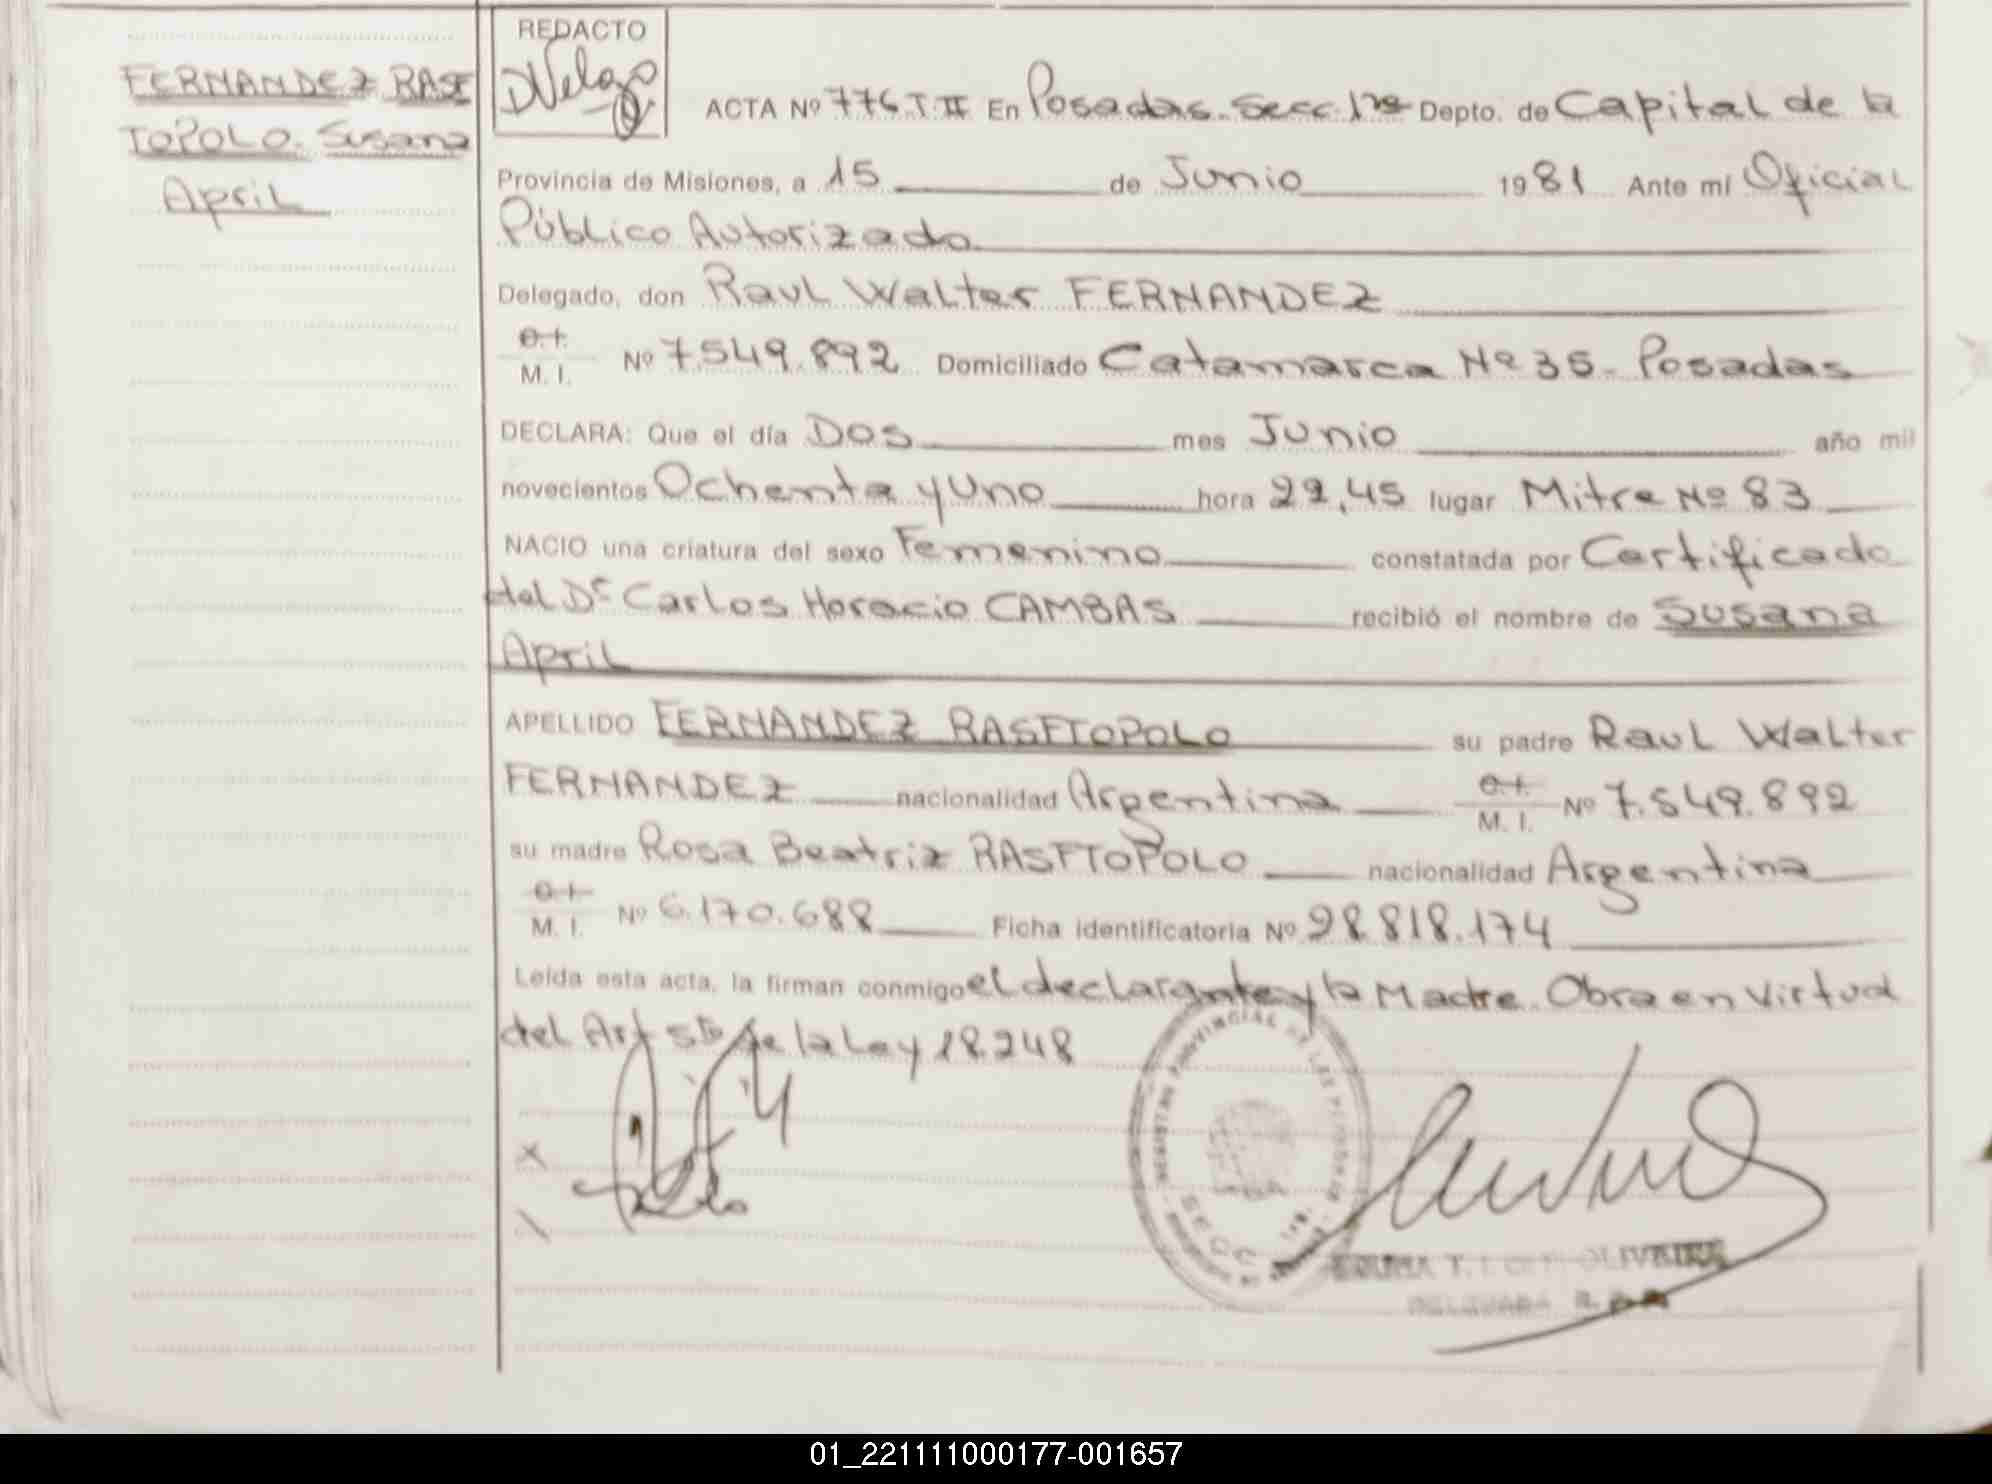 FERNANDEZ RASF
TOPOLO. Susana
April
REDACTO
DVelozo
ACTA Nº 776 T. II En Posadas. Secc. 1ra Depto. de Capital de la
Provincia de Misiones, a 15 de Junio 1981 Ante mí Oficial
Público Autorizado
Delegado, don Raul Walter FERNANDEZ
C.I.
M. I. Nº 7.549.892 Domiciliado Catamarca Nº 35 - Posadas
DECLARA: Que el día Dos mes Junio año mil
novecientos Ochenta y Uno hora 22,45 lugar Mitre Nº 83
NACIO una criatura del sexo Femenino constatada por Certificado
del Dr Carlos Horacio CAMBAS recibió el nombre de Susana
April
APELLIDO FERNANDEZ RASFTOPOLO su padre Raul Walter
FERNANDEZ nacionalidad Argentina C.I. M. I. Nº 7.549.892
su madre Rosa Beatriz RASFTOPOLO nacionalidad Argentina
C.I.
M. I. Nº 6.170.688 Ficha identificatoria Nº 28.818.174
Leída esta acta, la firman conmigo el declarante y la Madre. Obra en virtud
del Art 5to de la Ley 18.248
REGISTRO PROVINCIAL DE LAS PERSONAS
SECC
OLIVEIRA
01_221111000177-001657